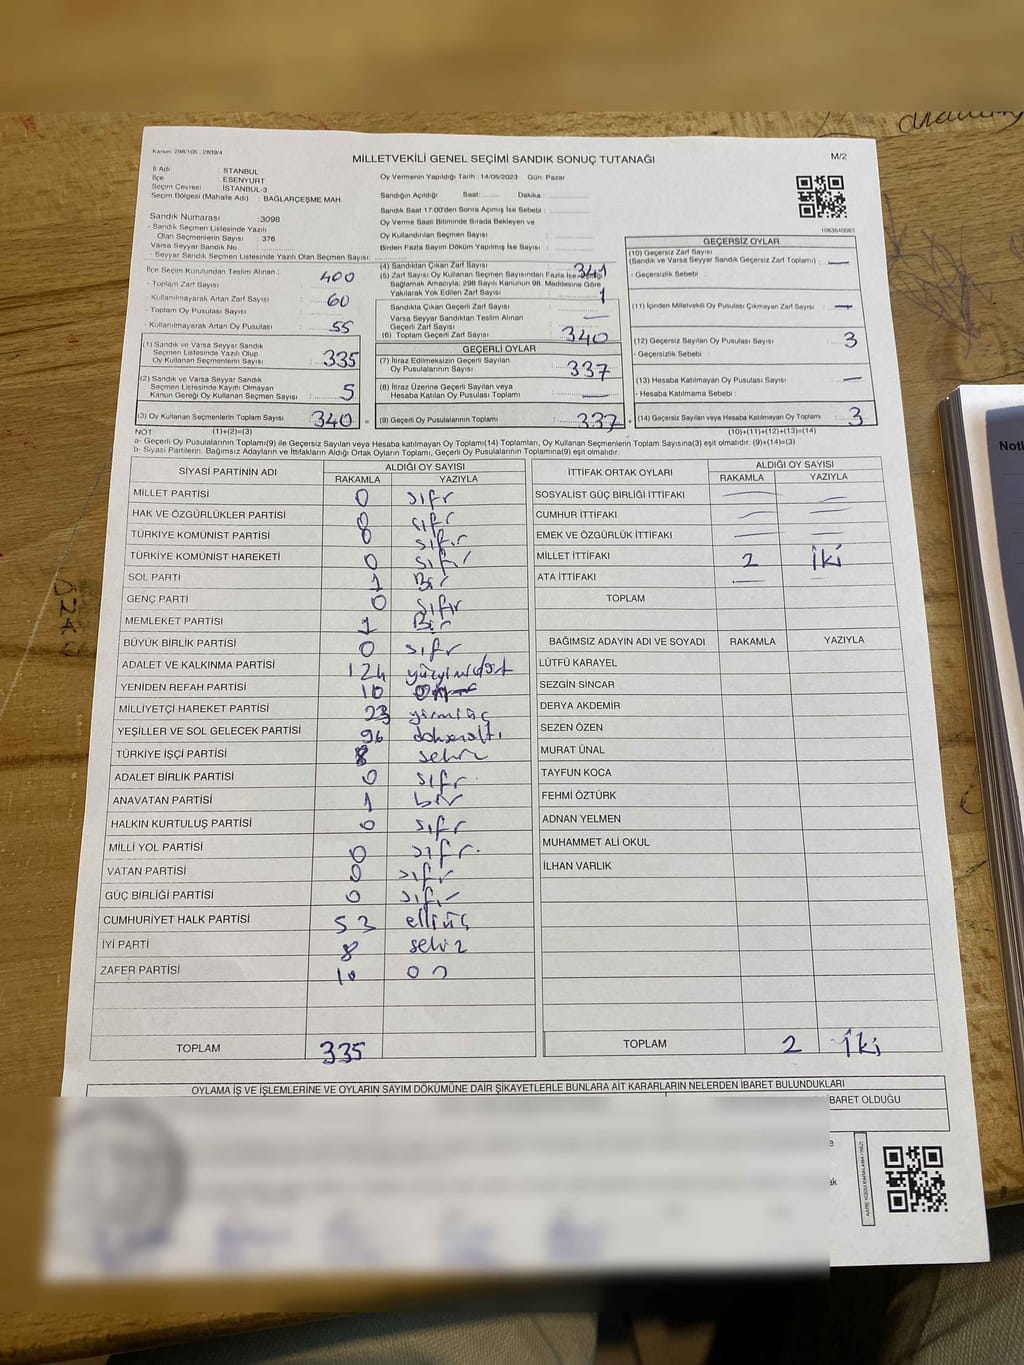 Kanun: 298/105 - 2839/4
MİLLETVEKİLİ GENEL SEÇİMİ SANDIK SONUÇ TUTANAĞI
M/2
İl Adı : STANBUL
İlçe : ESENYURT
Seçim Çevresi : İSTANBUL-3
Seçim Bölgesi (Mahalle Adı) : BAĞLARÇEŞME MAH.
Sandık Numarası : 3098
- Sandık Seçmen Listesinde Yazılı
Olan Seçmenlerin Sayısı : 376
Varsa Seyyar Sandık No
- Seyyar Sandık Seçmen Listesinde Yazılı Olan Seçmen Sayısı:
Oy Vermenin Yapıldığı Tarih : 14/05/2023 Gün: Pazar
Sandığın Açıldığı Saat: Dakika :
Sandık Saat 17:00'den Sonra Açılmış İse Sebebi :
Oy Verme Saati Bitiminde Sırada Bekleyen ve
Oy Kullandırılan Seçmen Sayısı :
Birden Fazla Sayım Döküm Yapılmış İse Sayısı :
1083640083
İlçe Seçim Kurulundan Teslim Alınan :
- Toplam Zarf Sayısı 400
- Kullanılmayarak Artan Zarf Sayısı 60
- Toplam Oy Pusulası Sayısı
- Kullanılmayarak Artan Oy Pusulası 55
(1) Sandık ve Varsa Seyyar Sandık
Seçmen Listesinde Yazılı Olup
Oy Kullanan Seçmenlerin Sayısı : 335
(2) Sandık ve Varsa Seyyar Sandık
Seçmen Listesinde Kayıtlı Olmayan
Kanun Gereği Oy Kullanan Seçmen Sayısı : 5
(3) Oy Kullanan Seçmenlerin Toplam Sayısı : 340 =
(1)+(2)=(3)
(4) Sandıktan Çıkan Zarf Sayısı : 341
(5) Zarf Sayısı Oy Kullanan Seçmen Sayısından Fazla İse
Sağlamak Amacıyla; 298 Sayılı Kanunun 98. Maddesine Göre
Yakılarak Yok Edilen Zarf Sayısı : 1
Sandıkta Çıkan Geçerli Zarf Sayısı
Varsa Seyyar Sandıktan Teslim Alınan
Geçerli Zarf Sayısı : —
(6) Toplam Geçerli Zarf Sayısı : 340
GEÇERLİ OYLAR
(7) İtiraz Edilmeksizin Geçerli Sayılan
Oy Pusulalarının Sayısı : 337
(8) İtiraz Üzerine Geçerli Sayılan veya
Hesaba Katılan Oy Pusulası Toplamı : —
(9) Geçerli Oy Pusulalarının Toplamı : 337 +
GEÇERSİZ OYLAR
(10) Geçersiz Zarf Sayısı
(Sandık ve Varsa Seyyar Sandık Geçersiz Zarf Toplamı) : —
- Geçersizlik Sebebi :
(11) İçinden Milletvekili Oy Pusulası Çıkmayan Zarf Sayısı : —
(12) Geçersiz Sayılan Oy Pusulası Sayısı : 3
- Geçersizlik Sebebi :
(13) Hesaba Katılmayan Oy Pusulası Sayısı : —
- Hesaba Katılmama Sebebi :
(14) Geçersiz Sayılan veya Hesaba Katılmayan Oy Toplamı : 3
(10)+(11)+(12)+(13)=(14)
NOT
a- Geçerli Oy Pusulalarının Toplamı(9) ile Geçersiz Sayılan veya Hesaba katılmayan Oy Toplamı(14) Toplamları, Oy Kullanan Seçmenlerin Toplam Sayısına(3) eşit olmalıdır. (9)+(14)=(3)
b- Siyasi Partilerin, Bağımsız Adayların ve İttifakların Aldığı Ortak Oyların Toplamı, Geçerli Oy Pusulalarının Toplamına(9) eşit olmalıdır.
SİYASİ PARTİNİN ADI ALDIĞI OY SAYISI
RAKAMLA YAZIYLA
MİLLET PARTİSİ 0 sıfr
HAK VE ÖZGÜRLÜKLER PARTİSİ 0 sıfr
TÜRKİYE KOMÜNİST PARTİSİ 0 sıfır
TÜRKİYE KOMÜNİST HAREKETİ 0 sıfır
SOL PARTİ 1 Bir
GENÇ PARTİ 0 sıfır
MEMLEKET PARTİSİ 1 Bir
BÜYÜK BİRLİK PARTİSİ 0 sıfr
ADALET VE KALKINMA PARTİSİ 124 yüzyirmidört
YENİDEN REFAH PARTİSİ 10
MİLLİYETÇİ HAREKET PARTİSİ 23 yirmiüç
YEŞİLLER VE SOL GELECEK PARTİSİ 96 doksanaltı
TÜRKİYE İŞÇİ PARTİSİ 8 sekiz
ADALET BİRLİK PARTİSİ 0 sıfr.
ANAVATAN PARTİSİ 1 bir
HALKIN KURTULUŞ PARTİSİ 0 sıfr
MİLLİ YOL PARTİSİ 0 sıfr.
VATAN PARTİSİ 0 sıfr
GÜÇ BİRLİĞİ PARTİSİ 0 sıfır
CUMHURİYET HALK PARTİSİ 53 elliüç
İYİ PARTİ 8 sekiz
ZAFER PARTİSİ 10 on
TOPLAM 335
İTTİFAK ORTAK OYLARI ALDIĞI OY SAYISI
RAKAMLA YAZIYLA
SOSYALİST GÜÇ BİRLİĞİ İTTİFAKI — —
CUMHUR İTTİFAKI — —
EMEK VE ÖZGÜRLÜK İTTİFAKI — —
MİLLET İTTİFAKI 2 İki
ATA İTTİFAKI — —
TOPLAM
BAĞIMSIZ ADAYIN ADI VE SOYADI RAKAMLA YAZIYLA
LÜTFÜ KARAYEL
SEZGİN SİNCAR
DERYA AKDEMİR
SEZEN ÖZEN
MURAT ÜNAL
TAYFUN KOCA
FEHMİ ÖZTÜRK
ADNAN YELMEN
MUHAMMET ALİ OKUL
İLHAN VARLIK
TOPLAM 2 İki
OYLAMA İŞ VE İŞLEMLERİNE VE OYLARIN SAYIM DÖKÜMÜNE DAİR ŞİKAYETLERLE BUNLARA AİT KARARLARIN NELERDEN İBARET BULUNDUKLARI
BARET OLDUĞU